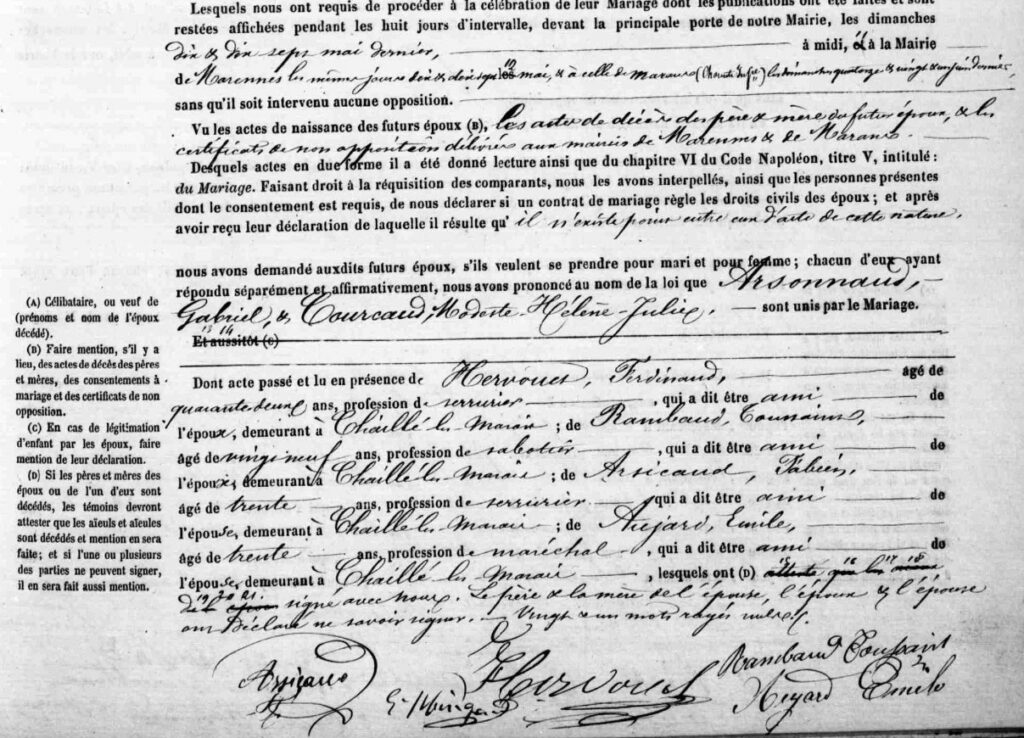 Lesquels nous ont requis de procéder à la célébration de leur Mariage dont les publications ont été faites et sont
restées affichées pendant les huit jours d'intervalle, devant la principale porte de notre Mairie, les dimanches
dix & dix sept mai dernier, à midi, & à la Mairie
de Marennes les mêmes jours dix & dix sept mai, & à celle de Marans les dimanches quatorze & vingt & un juin dernier,
sans qu'il soit intervenu aucune opposition.
Vu les actes de naissance des futurs époux (B), les actes de décès des père & mère du futur époux, & les
certificats de non opposition délivrés aux mairies de Marennes & de Marans.
Desquels actes en due forme il a été donné lecture ainsi que du chapitre VI du Code Napoléon, titre V, intitulé :
du Mariage. Faisant droit à la réquisition des comparants, nous les avons interpellés, ainsi que les personnes présentes
dont le consentement est requis, de nous déclarer si un contrat de mariage règle les droits civils des époux ; et après
avoir reçu leur déclaration de laquelle il résulte qu'il n'existe point entre eux d'acte de cette nature,
nous avons demandé auxdits futurs époux, s'ils veulent se prendre pour mari et pour femme ; chacun d'eux ayant
répondu séparément et affirmativement, nous avons prononcé au nom de la loi que Arsonnaud,
Gabriel, & Courcaud, Modeste-Hélène-Julie, sont unis par le Mariage.
13 14
Et aussitôt (C)
(A) Célibataire, ou veuf de
(prénoms et nom de l'époux
décédé).
(B) Faire mention, s'il y a
lieu, des actes de décès des pères
et mères, des consentements à
mariage et des certificats de non
opposition.
(C) En cas de légitimation
d'enfant par les époux, faire
mention de leur déclaration.
(D) Si les pères et mères des
époux ou de l'un d'eux sont
décédés, les témoins devront
attester que les aïeuls et aïeules
sont décédés et mention en sera
faite; et si l'une ou plusieurs
des parties ne peuvent signer,
il en sera fait aussi mention.
Dont acte passé et lu en présence de Hervouet, Ferdinand, âgé de
quarante deux ans, profession de serrurier, qui a dit être ami de
l'époux, demeurant à Chaillé les Marais ; de Rambaud, Toussaint,
âgé de vingt neuf ans, profession de sabotier, qui a dit être ami de
l'époux, demeurant à Chaillé les Marais ; de Arsicaud, Fabien,
âgé de trente ans, profession de serrurier, qui a dit être ami de
l'épouse, demeurant à Chaillé les Marais ; de Aujard, Emile,
âgé de trente ans, profession de maréchal, qui a dit être ami de
l'épouse, demeurant à Chaillé les Marais, lesquels ont (D)
signé avec nous. Le père & la mère de l'épouse, l'époux & l'épouse
ont déclaré ne savoir signer. Vingt & un mots rayés nuls.
Hervouet
Rambaud Toussaint
Emile